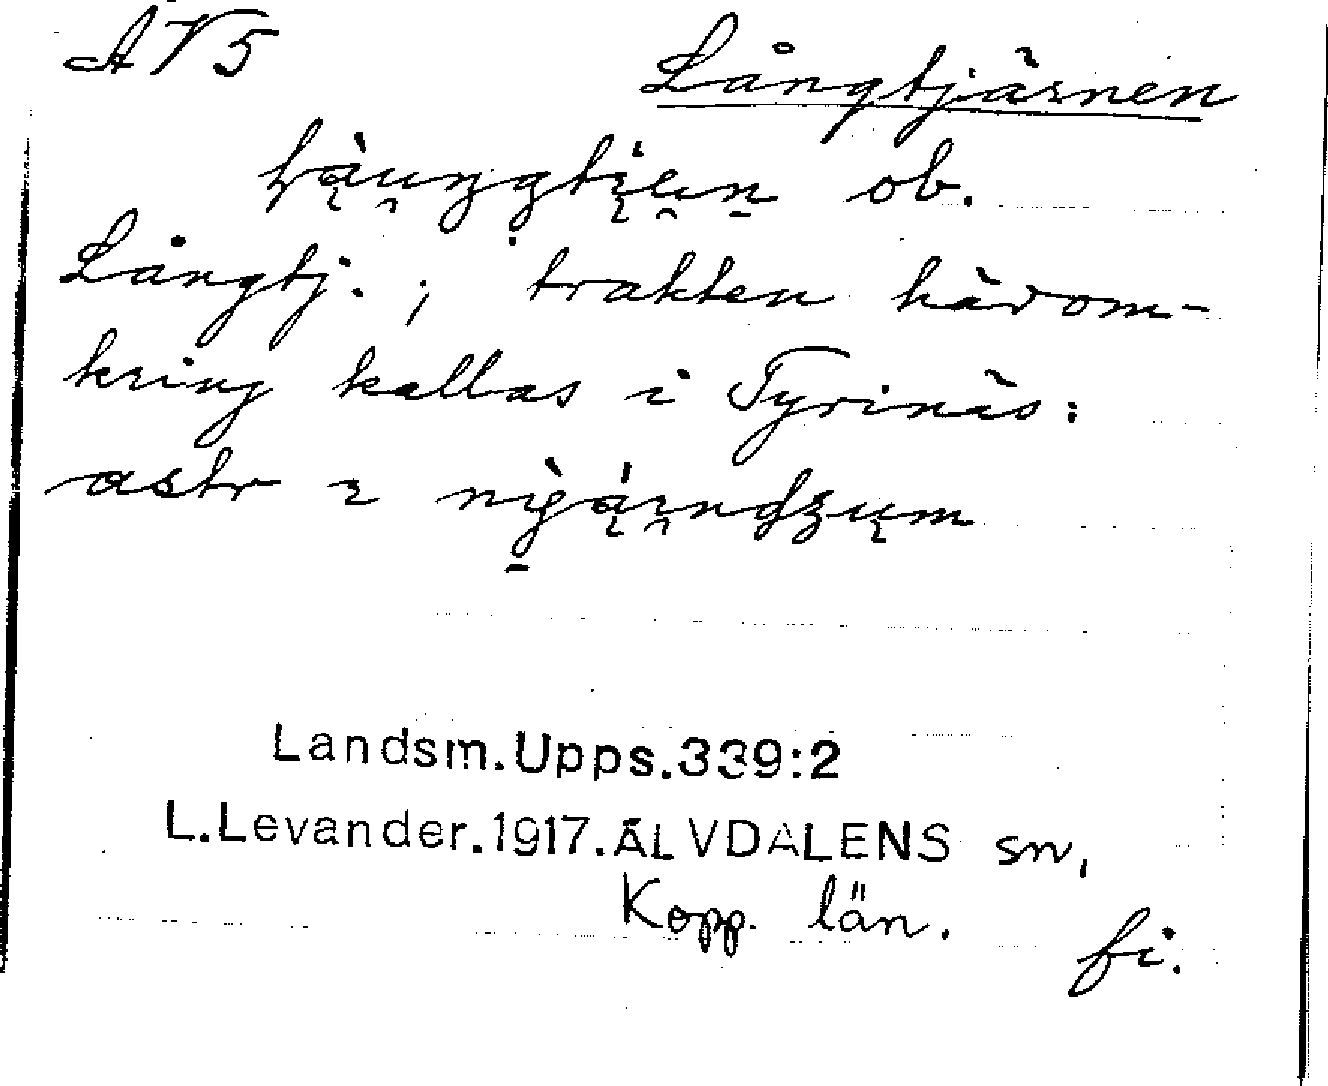 A V 5
Långtjärnen
ob.
Långtj.; trakten härom-
kring kallas i Tyrinäs:
astr
Landsm.Upps.339:2
L.Levander.1917.ÄLVDALENS sn,
Kopp. län.
fi.